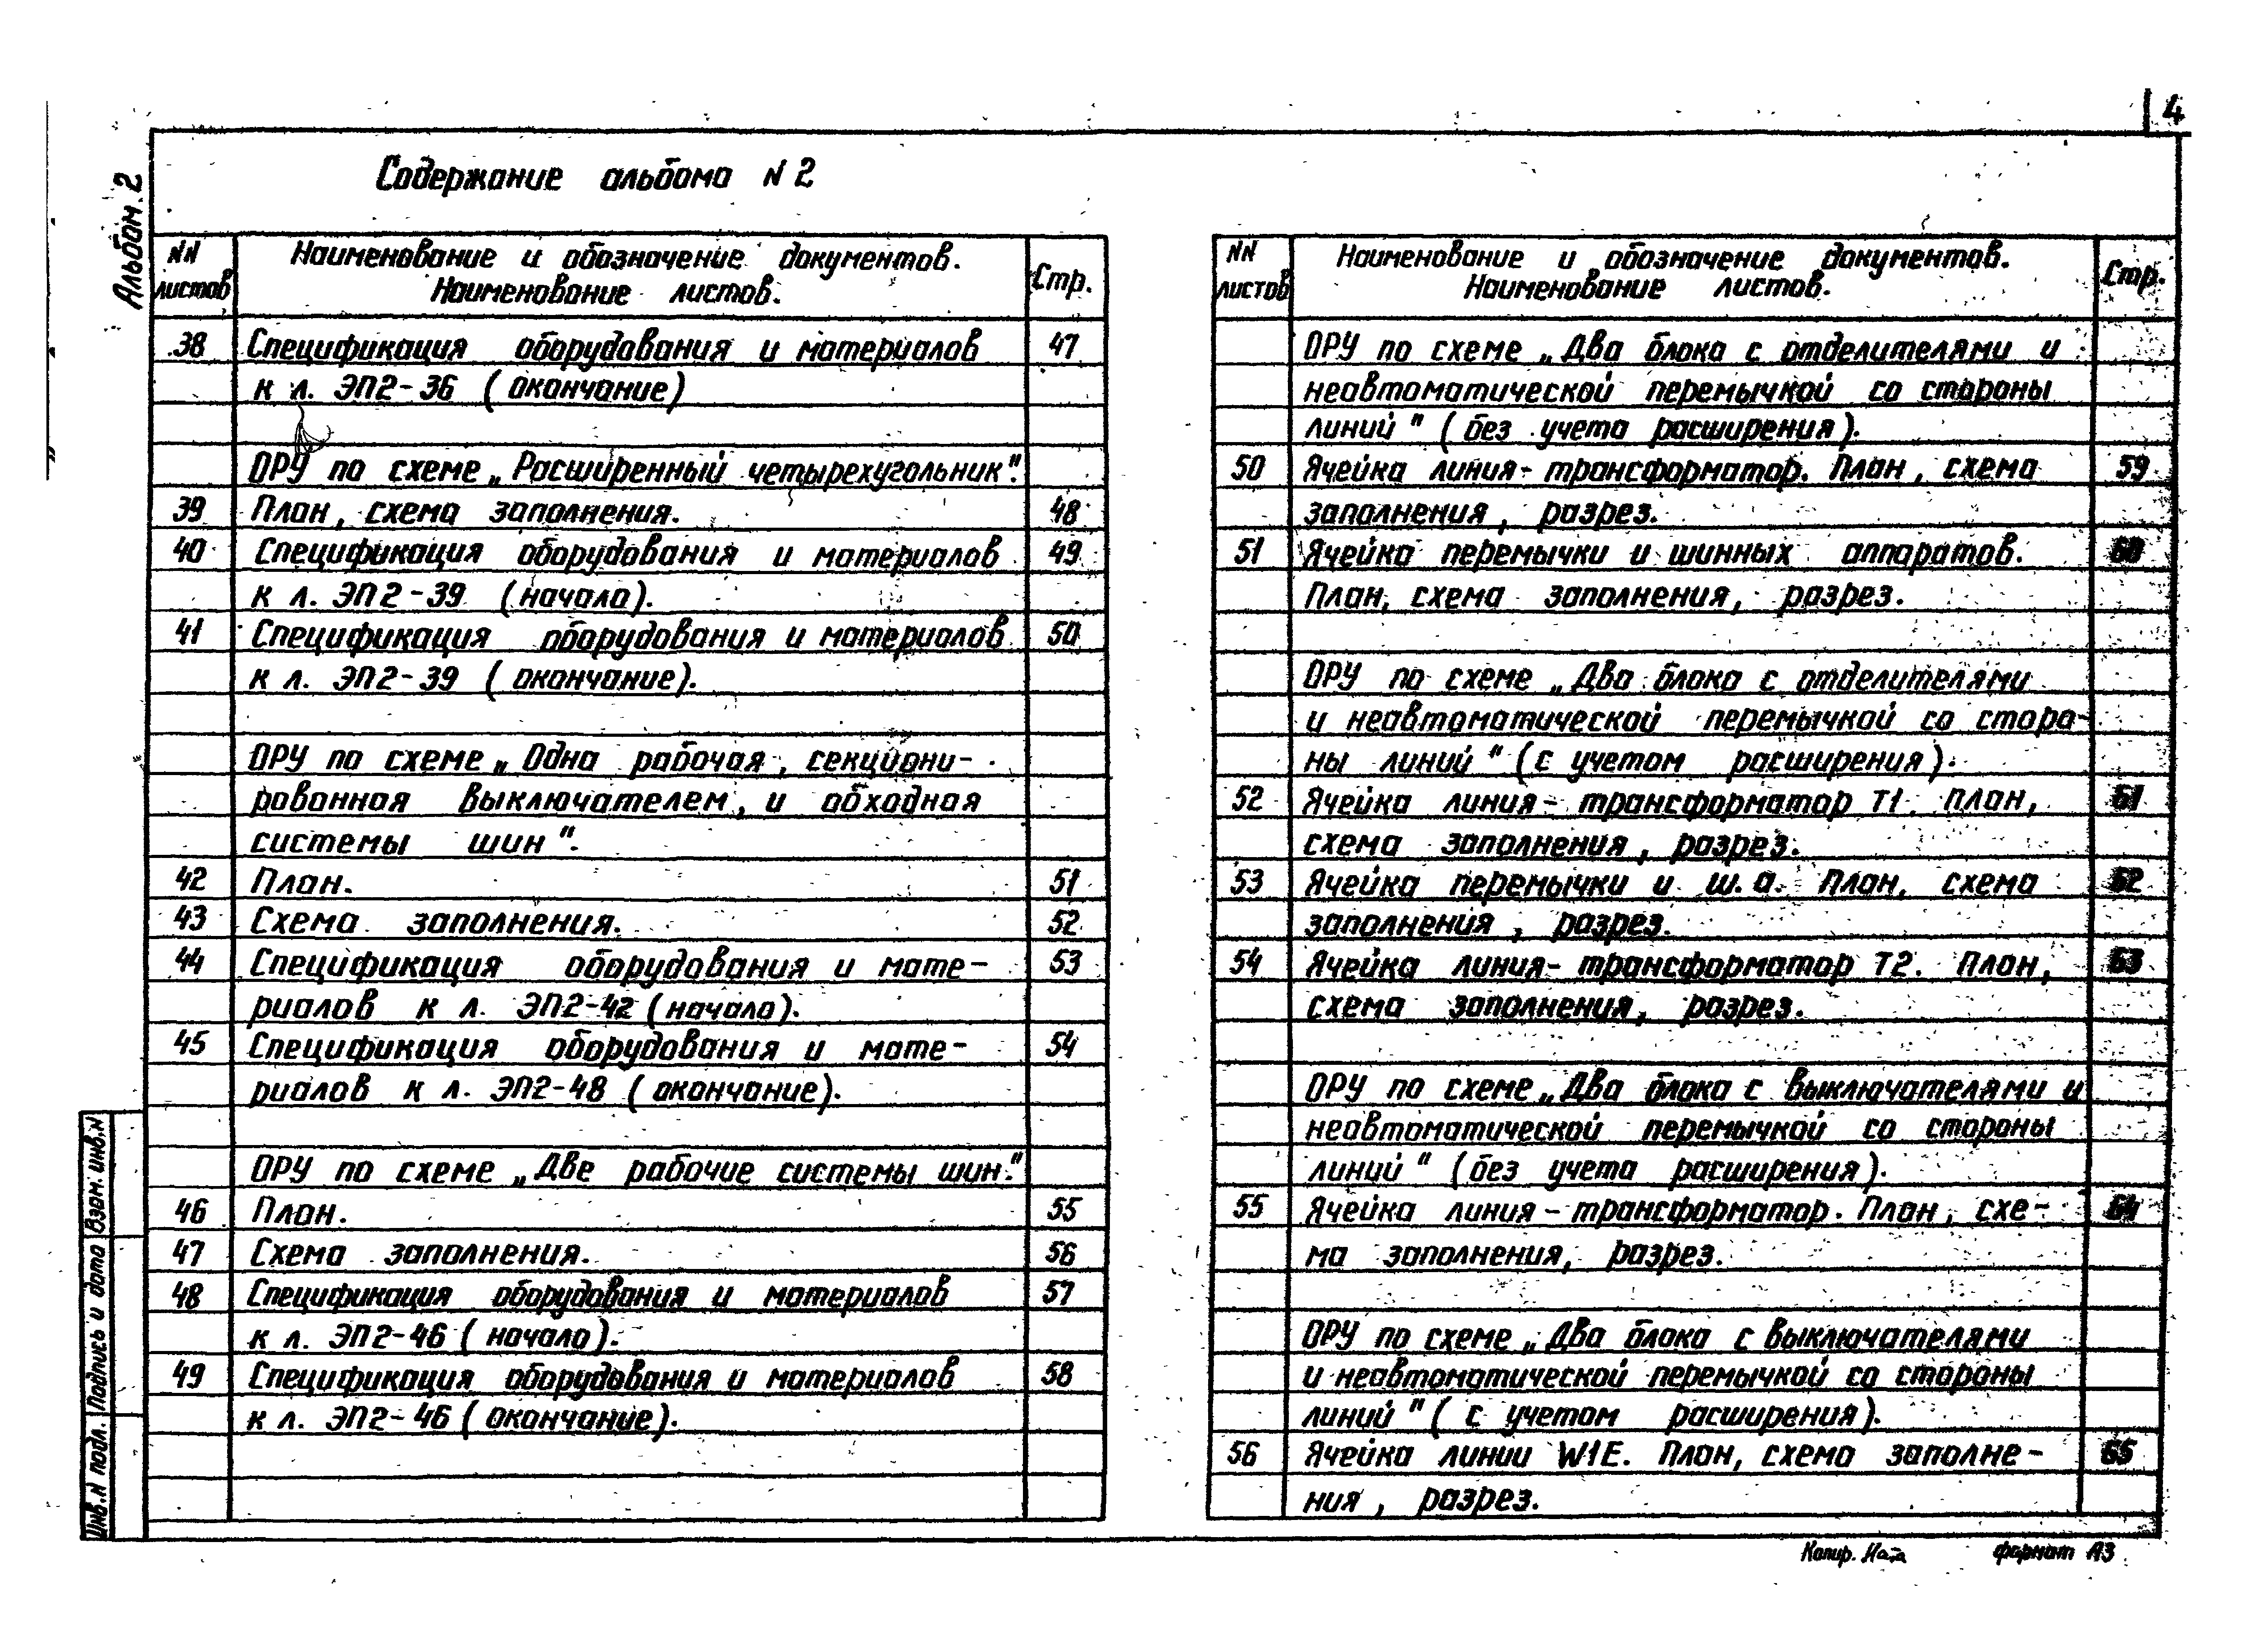 4
Альбом. 2
Содержание альбома N 2
NN листов
Наименование и обозначение документов.
Наименование листов.
Стр.
38 Спецификация оборудования и материалов 47
к л. ЭП2-36 (окончание)
ОРУ по схеме „Расширенный четырехугольник".
39 План, схема заполнения. 48
40 Спецификация оборудования и материалов 49
к л. ЭП2-39 (начало).
41 Спецификация оборудования и материалов 50
к л. ЭП2-39 (окончание).
ОРУ по схеме „Одна рабочая, секциони-
рованная выключателем, и обходная
системы шин".
42 План. 51
43 Схема заполнения. 52
44 Спецификация оборудования и мате- 53
риалов к л. ЭП2-42 (начало).
45 Спецификация оборудования и мате- 54
риалов к л. ЭП2-48 (окончание).
ОРУ по схеме „Две рабочие системы шин".
46 План. 55
47 Схема заполнения. 56
48 Спецификация оборудования и материалов 57
к л. ЭП2-46 (начало).
49 Спецификация оборудования и материалов 58
к л. ЭП2-46 (окончание).
NN листов
Наименование и обозначение документов.
Наименование листов.
Стр.
ОРУ по схеме „Два блока с отделителями и
неавтоматической перемычкой со стороны
линий" (без учета расширения).
50 Ячейка линия-трансформатор. План, схема 59
заполнения, разрез.
51 Ячейка перемычки и шинных аппаратов. 60
План, схема заполнения, разрез.
ОРУ по схеме „Два блока с отделителями
и неавтоматической перемычкой со сторо-
ны линий" (с учетом расширения).
52 Ячейка линия-трансформатор Т1. План, 61
схема заполнения, разрез.
53 Ячейка перемычки и ш.а. План, схема 62
заполнения, разрез.
54 Ячейка линия-трансформатор Т2. План, 63
схема заполнения, разрез.
ОРУ по схеме „Два блока с выключателями и
неавтоматической перемычкой со стороны
линий" (без учета расширения).
55 Ячейка линия-трансформатор. План, схе- 64
ма заполнения, разрез.
ОРУ по схеме „Два блока с выключателями
и неавтоматической перемычкой со стороны
линий" (с учетом расширения).
56 Ячейка линии W1E. План, схема заполне- 65
ния, разрез.
Взам. инв. N
Подпись и дата
Инв. N подл.
Копир. Ната формат А3